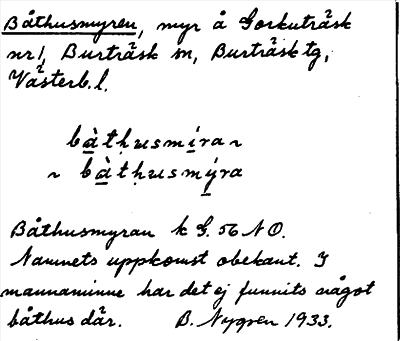 Båthusmyren, myr å Gorkuträsk
nr 1, Burträsk sn, Burträsk tg,
Västerb. l.
bàt̩husmíra ~
~ bàt̩husmýra
Båthusmyran k G. 56 N O.
Namnets uppkomst obekant. I
mannaminne har det ej funnits något
båthus där. B. Nygren 1933.